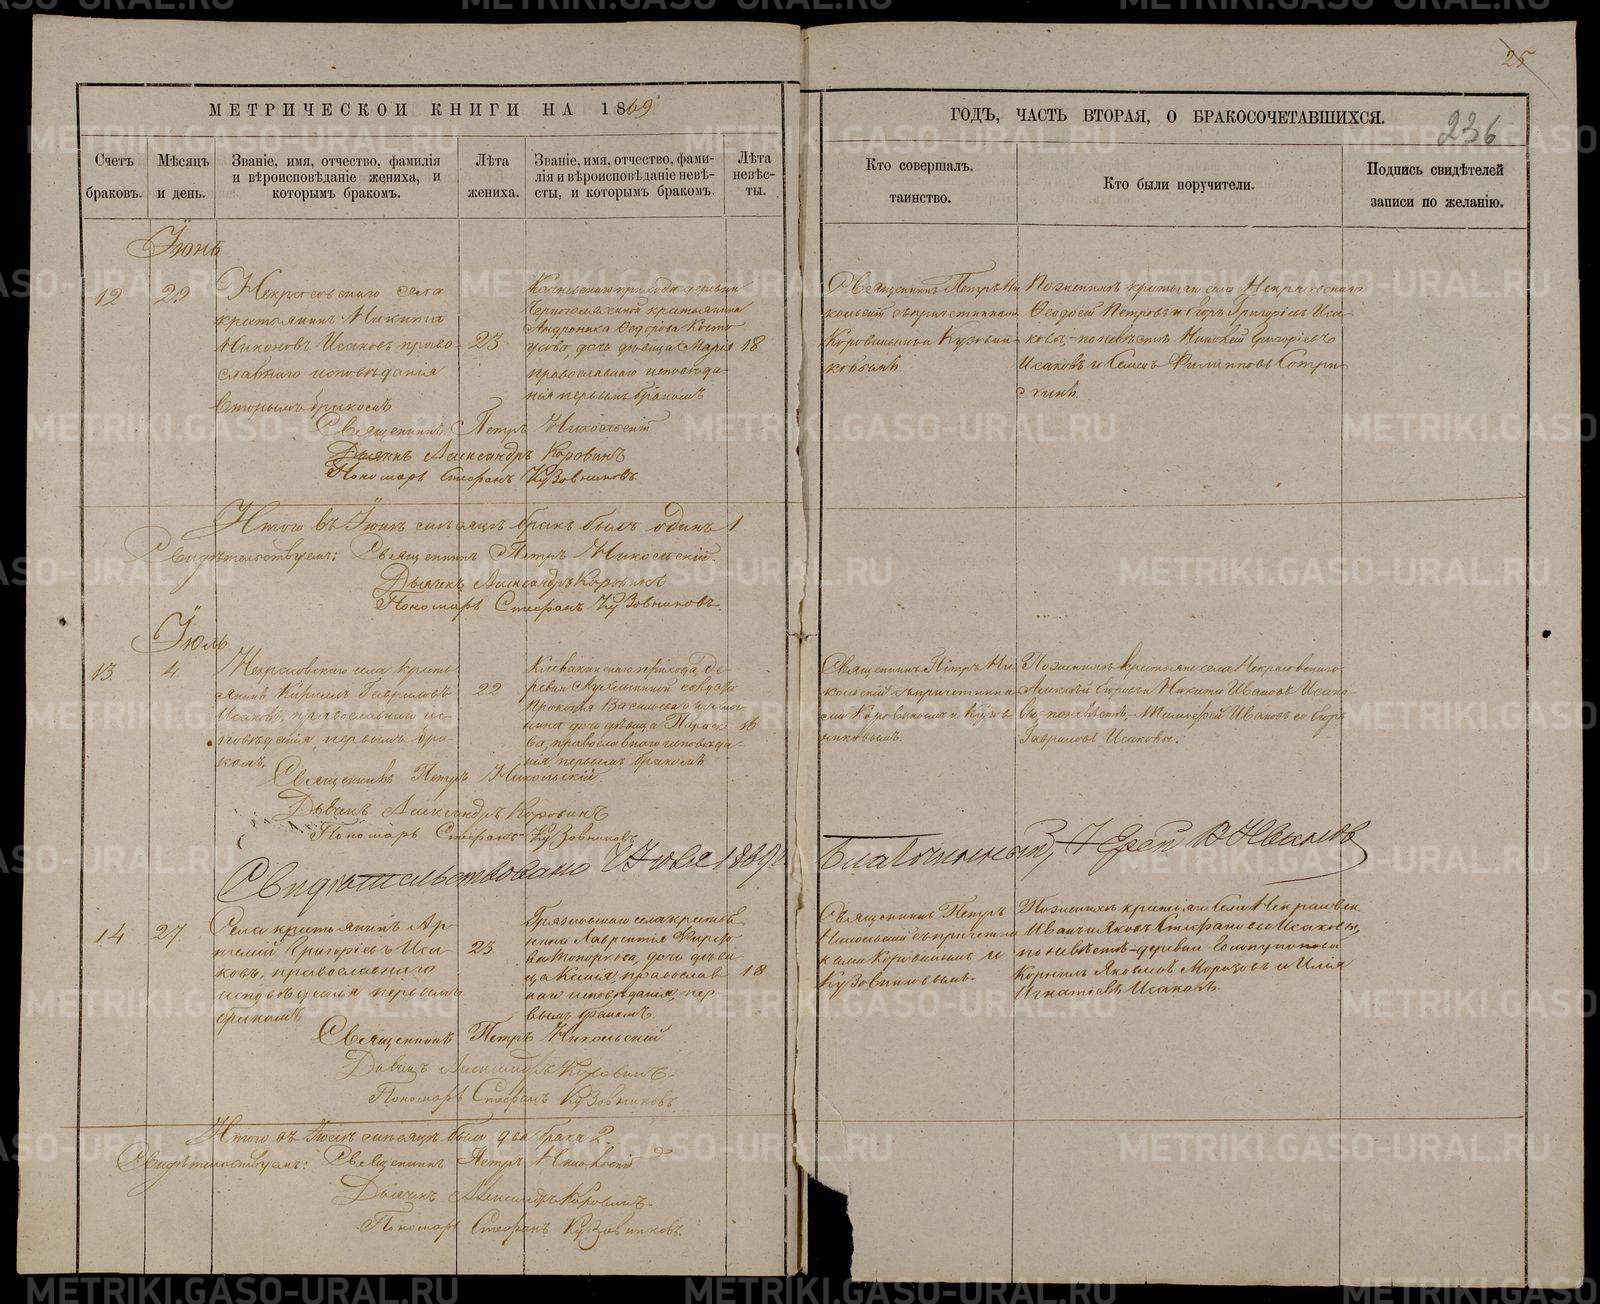 25
МЕТРИЧЕСКОЙ КНИГИ НА 1869
ГОДЪ, ЧАСТЬ ВТОРАЯ, О БРАКОСОЧЕТАВШИХСЯ.
236
Счетъ браковъ.
Мѣсяцъ и день.
Званіе, имя, отчество, фамилія
и вѣроисповѣданіе жениха, и
которымъ бракомъ.
Лѣта жениха.
Званіе, имя, отчество, фами-
лія и вѣроисповѣданіе невѣ-
сты, и которымъ бракомъ.
Лѣта невѣс-
ты.
Кто совершалъ
таинство.
Кто были поручители.
Подпись свидѣтелей
записи по желанію.
Іюнь
12
29
Некрасовскаго села
крестьянинъ Никита
Никоновъ Исаковъ право-
славнаго исповѣданія
вторымъ бракомъ
23
прихода деревни
крестьянина
Андроника Ѳедорова
дочь дѣвица Марія
православнаго исповѣда-
нія первымъ бракомъ
18
Священникъ Петръ Ни
кольскій съ причетниками
Коровинымъ и Кузовни
ковымъ
По женихѣ крестьяне села Некрасовскаго
Ѳеодосій Петровъ и Егоръ Григорьевъ Иса-
ковы, по невѣстѣ Григорьевъ
Исаковъ и Семенъ Филипповъ
Священникъ Петръ Никольскій
Дьячекъ Александръ Коровинъ
Пономарь Стефанъ Кузовниковъ
Итого въ Іюнѣ мѣсяцѣ бракъ былъ одинъ 1
Свидѣтельствуемъ: Священникъ Петръ Никольскій.
Дьячекъ Александръ Коровинъ
Пономарь Стефанъ Кузовниковъ.
Іюль
13
4
Некрасовскаго села кресть
янинъ Кириллъ Гавриловъ
Исаковъ, православнаго ис-
повѣданія, первымъ бра-
комъ,
22
прихода, де-
ревни солдата
Прокопія Васильева
дочь дѣвица Параске-
ва, православнаго исповѣда-
нія, первымъ бракомъ
18
Священникъ Петръ Ни-
кольскій съ причетника-
ми Коровинымъ и Кузов
никовымъ.
По женихѣ крестьяне села Некрасовскаго
Алексѣй и Никита Ивановъ Исако-
вы, по невѣстѣ Тимофей Ивановъ и Егоръ
Гавриловъ Исаковы.
Священникъ Петръ Никольскій
Дьячекъ Александръ Коровинъ
Пономарь Стефанъ Кузовниковъ
Свидѣтельствовано Іюля 1869
Благочинный, Іерей
14
27
Села крестьянинъ Ар-
темій Григорьевъ Иса-
ковъ, православнаго
исповѣданія первымъ
бракомъ
23
Грязновскаго села кресть-
янина Лаврентія
дочь дѣви-
ца Ксенія, православ-
наго исповѣданія, пер-
вымъ бракомъ.
18
Священникъ Петръ
Никольскій съ причетни
ками Коровинымъ и
Кузовниковымъ.
По женихѣ крестьяне села Некрасовск.
Иванъ и Яковъ Стефановы Исаковы,
по невѣстѣ деревни
Корнилъ Яковлевъ Морозовъ и Илія
Игнатіевъ Исаковъ.
Священникъ Петръ Никольскій
Дьячекъ Александръ Коровинъ.
Пономарь Стефанъ Кузовниковъ
Итого въ Іюлѣ мѣсяцѣ было два брака 2.
Свидѣтельствуемъ: Священникъ Петръ Никольскій
Дьячекъ Александръ Коровинъ.
Пономарь Стефанъ Кузовниковъ.
METRIKI.GASO-URAL.RU